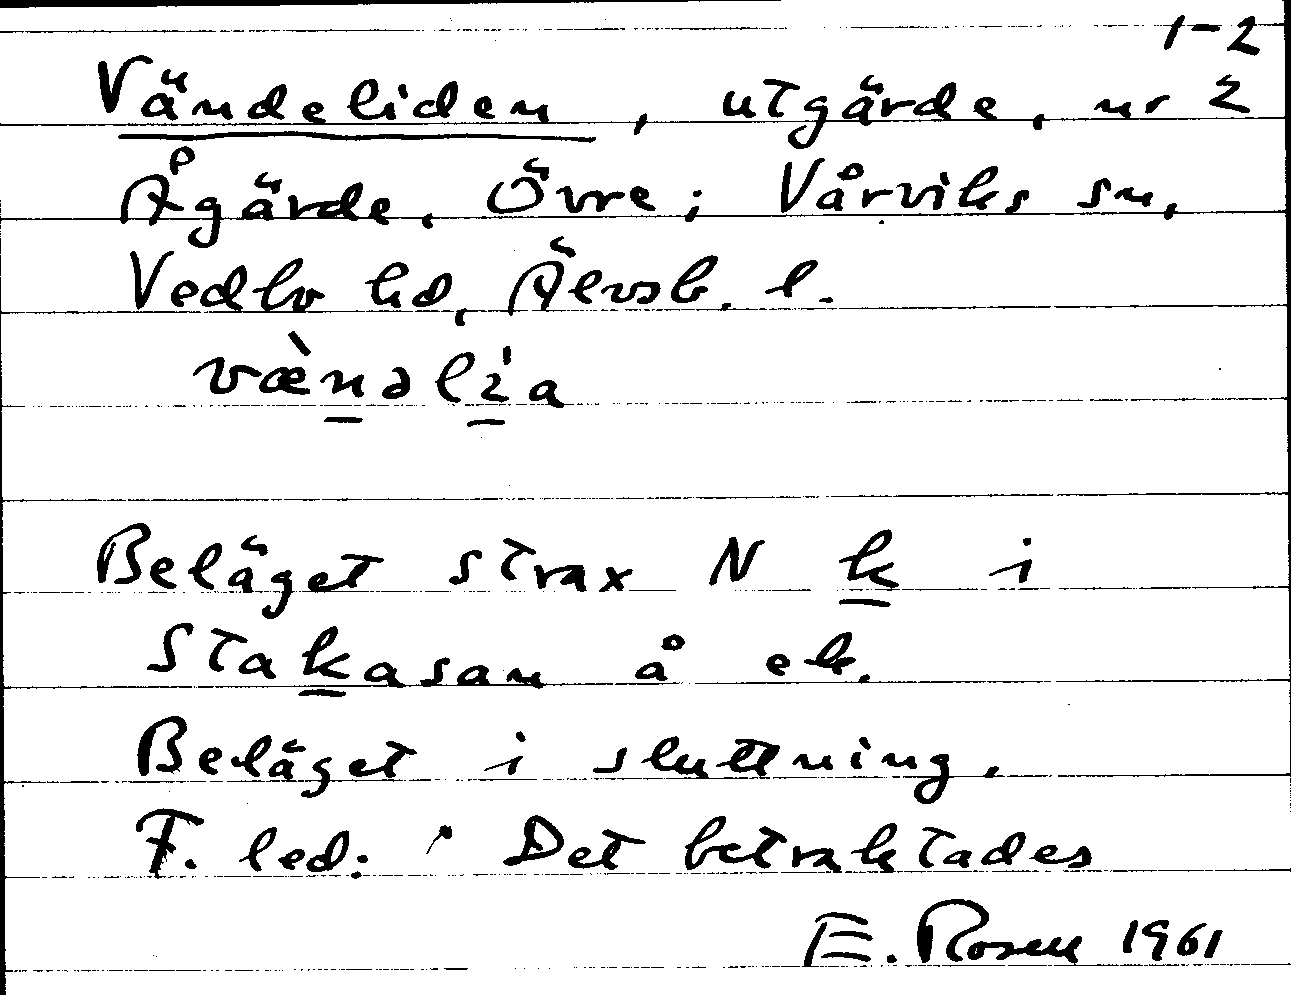 1-2
Vändeliden, utgärde, nr 2
Ågärde, Övre; Vårviks sn,
Vedbo hd, Älvsb. l.
væ̀nəli̇́a
Beläget strax N k i
Stakasan å ek.
Beläget i sluttning.
F. led: " Det betraktades
E. Rosen 1961